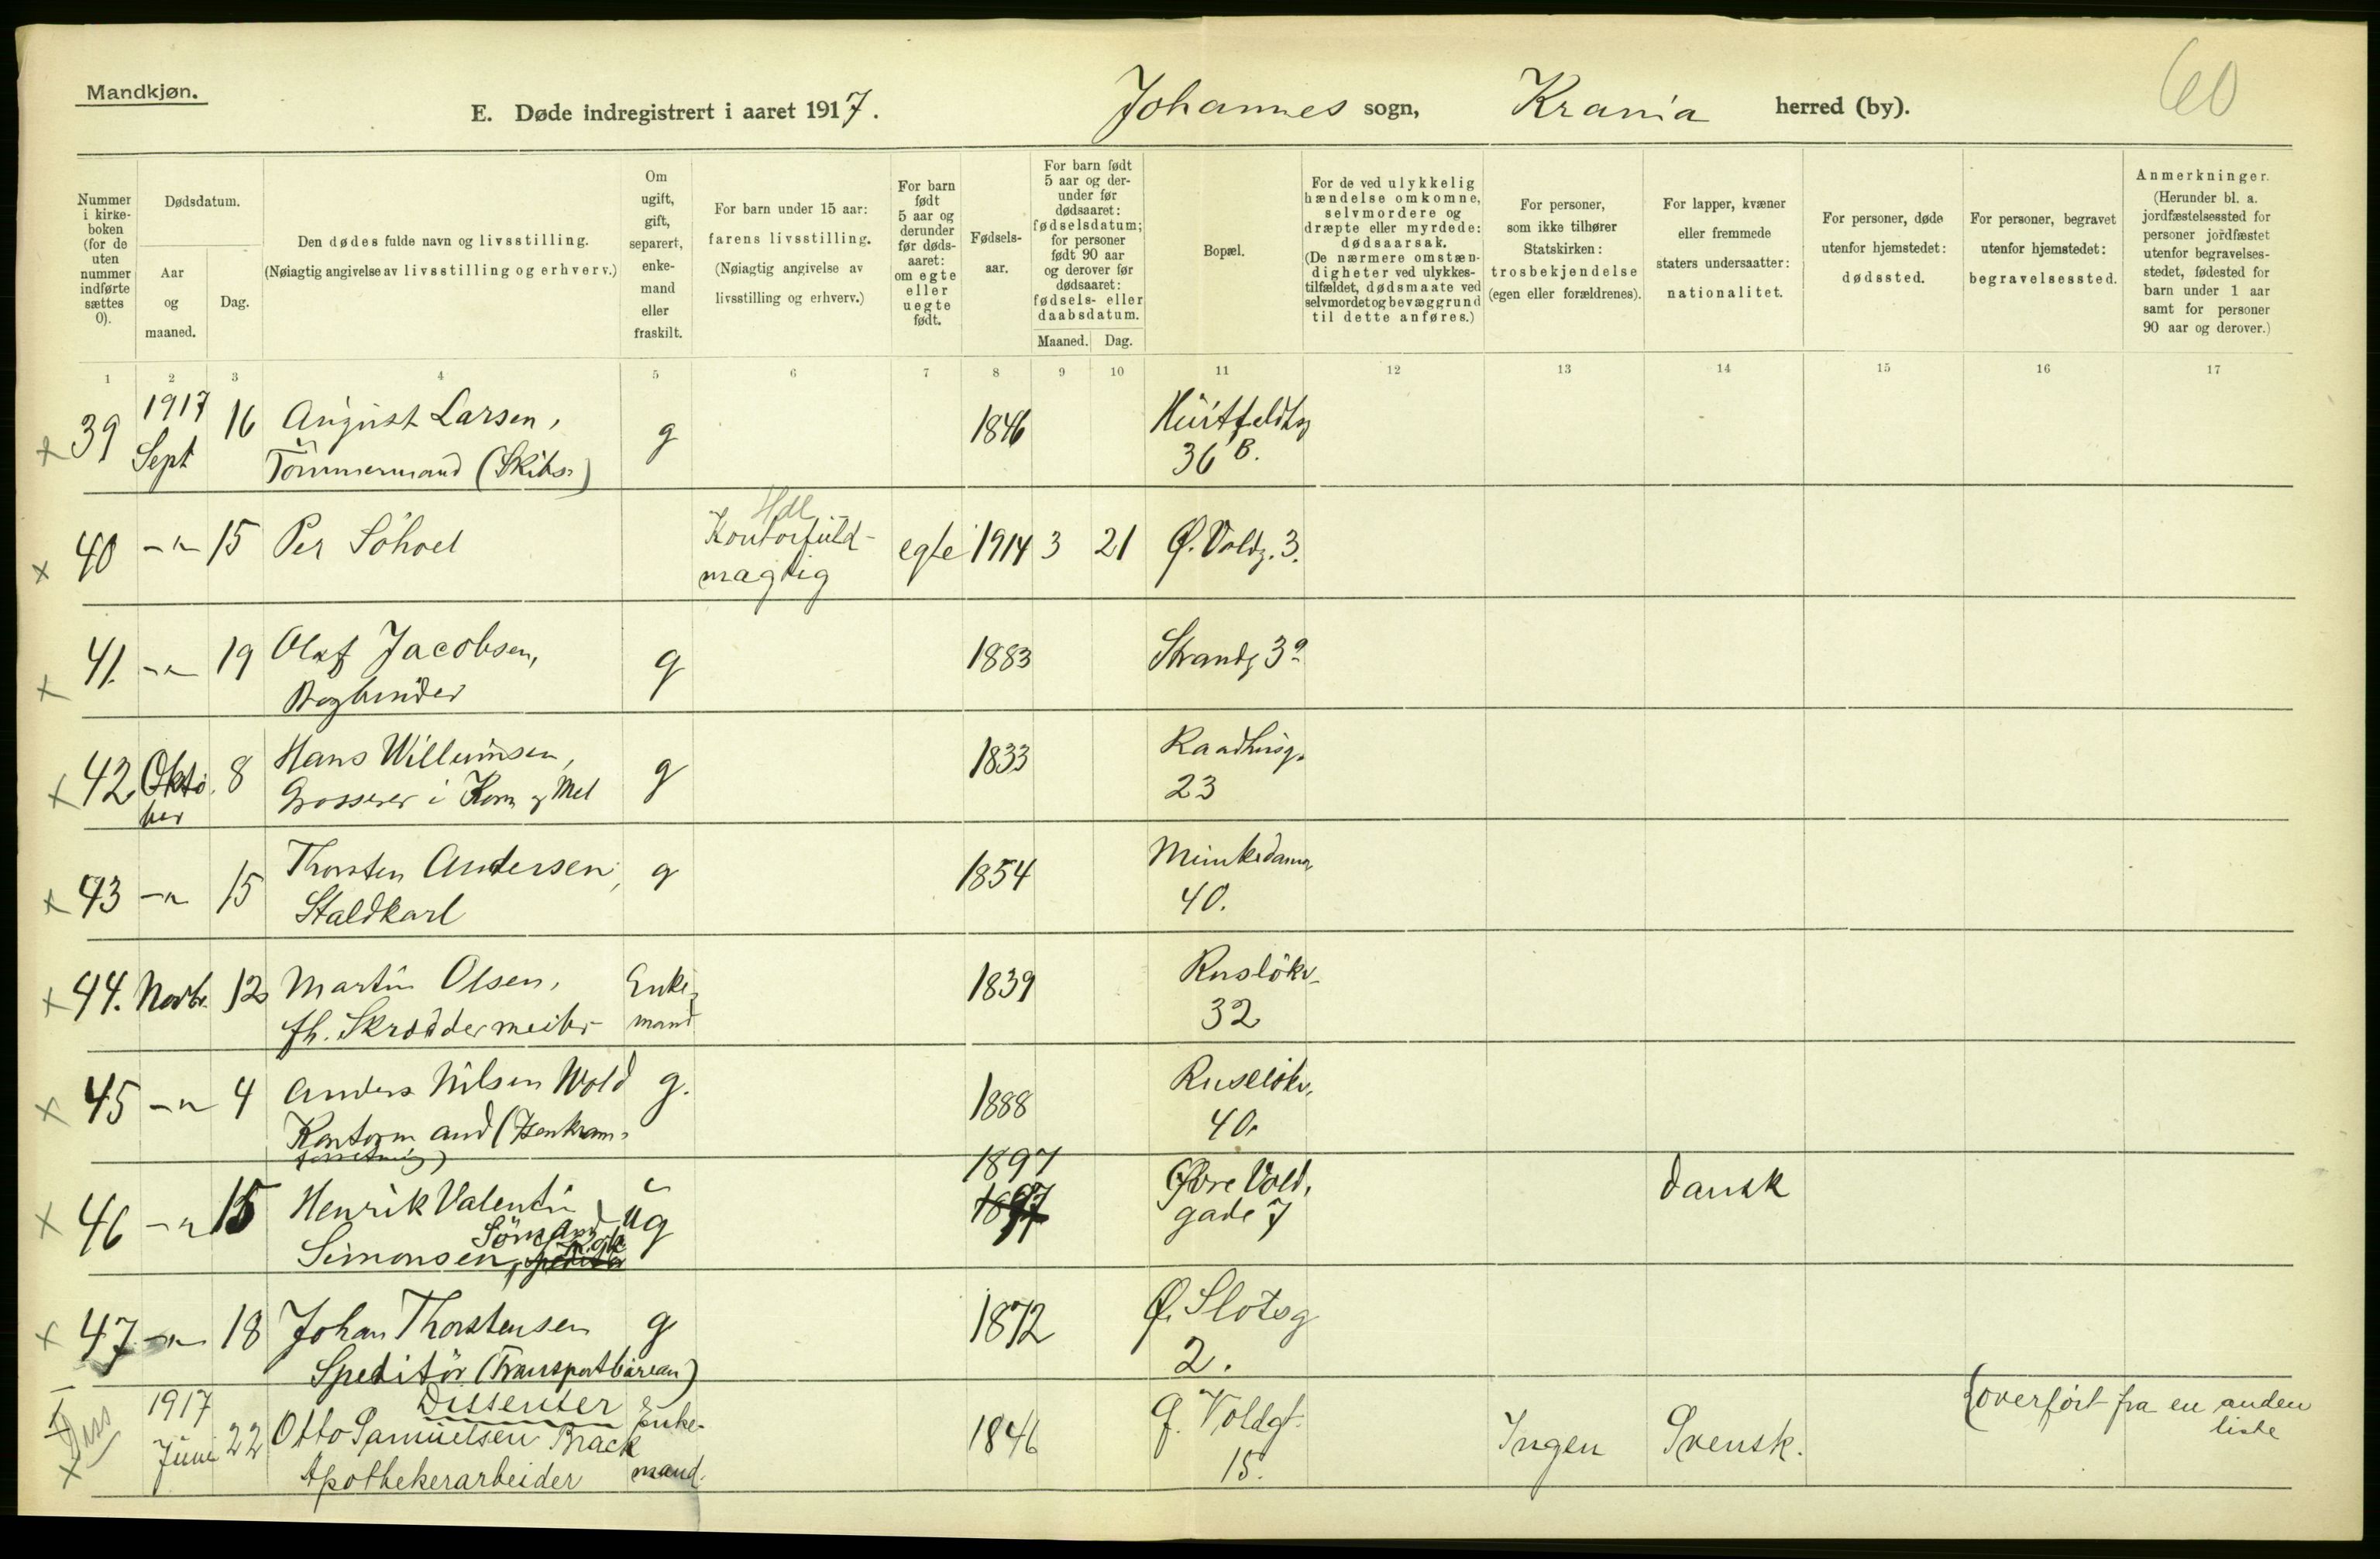 Mandkjøn.
E. Døde indregistrert i aaret 1917.
Johannes sogn, Krania herred (by).
60
Nummer i kirke-boken (for de uten nummer indførte sættes 0).
Dødsdatum.
Aar og maaned.
Dag.
Den dødes fulde navn og livsstilling.
(Nøiagtig angivelse av livsstilling og erhverv.)
Om ugift, gift, separert, enke-mand eller fraskilt.
For barn under 15 aar: farens livsstilling.
(Nøiagtig angivelse av livsstilling og erhverv.)
For barn født 5 aar og derunder før døds-aaret: om egte eller uegte født.
Fødsels-aar.
For barn født 5 aar og der-under før dødsaaret: fødselsdatum; for personer født 90 aar og derover før dødsaaret: fødsels- eller daabsdatum.
Maaned. Dag.
Bopæl.
For de ved ulykkelig hændelse omkomne, selvmordere og dræpte eller myrdede: dødsaarsak.
(De nærmere omstæn-digheter ved ulykkes-tilfældet, dødsmaate ved selvmordet og bevæggrund til dette anføres.)
For personer, som ikke tilhører Statskirken: trosbekjendelse (egen eller forældrenes).
For lapper, kvæner eller fremmede staters undersaatter: nationalitet.
For personer, døde utenfor hjemstedet: dødssted.
For personer, begravet utenfor hjemstedet: begravelsessted.
Anmerkninger.
(Herunder bl. a. jordfæstelsessted for personer jordfæstet utenfor begravelses-stedet, fødested for barn under 1 aar samt for personer 90 aar og derover.)
1 2 3 4 5 6 7 8 9 10 11 12 13 14 15 16 17
x 39 1917 Sept 16 August Larsen, g 1846
Tömmermand (Skibs-) 36 B.
Hdl
x 40 -"- 15 Per Söhoel Kontorfuld- egte 1914 3 21 Ø. Voldg. 3.
magtig
x 41. -"- 19 Olaf Jacobsen, g 1883 Strandg 3
Bogbinder
x 42 Okto. 8 Hans Willumsen, g 1833 Raadhusg.
ber Grosserer i Korn og Mel 23
x 43 -"- 15 Thorsten Andersen, g 1854 Munkedamsv
Staldkarl 40.
x 44. Novbr. 12 Martin Olsen, Enke- 1839 Ruslökv
fh. Skræddermester mand 32
x 45 -"- 4 Anders Nilsen Wold g. 1888 Ruselökv.
Kontormand (Isenkram- 40.
forretning)
x 46 -"- 15 Henrik Valentin ug 1897 Øvre Vold. dansk
Simonsen, Sömand 1897 gade 7
x 47 -"- 18 Johan Thorstensen g 1872 Ø. Slotsg
Speditör (Transportbureau) 2.
Dissenter
I Diss x 1917 Juni 22 Otto Samuelsen Brack Enke- 1846 Ø. Voldgt. Ingen Svensk. (overfört fra en anden
Apothekerarbeider mand. 15. liste